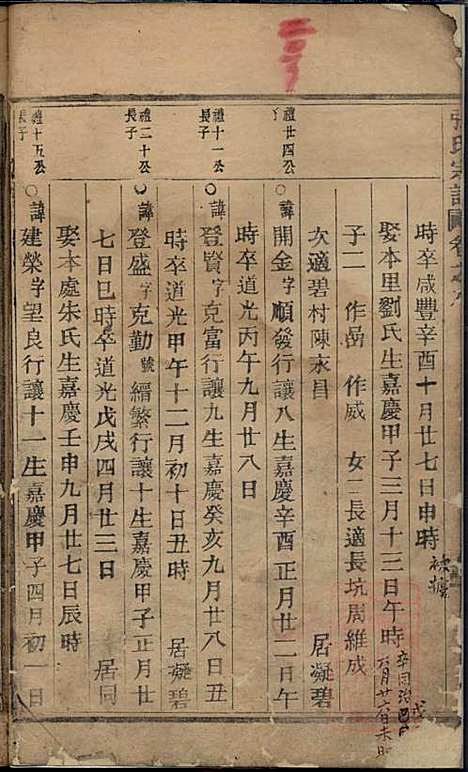 張氏宗譜
時卒咸豐辛酉十月廿七日申時
娶本里劉氏生嘉慶甲子三月十三日午時
子二 作嵒 作威 女二長適長坑周維成
次適碧村陳永昌 居凝碧
禮廿四公
○諱開金字順發行讓八生嘉慶辛酉正月廿二日午
時卒道光丙午九月廿八日
禮十一公長子
○諱登賢字克富行讓九生嘉慶癸亥九月廿八日丑
時卒道光甲午十二月初十日丑時 居凝碧
禮二十公長子
○諱登盛字克勤號縉繁行讓十生嘉慶甲子正月廿
七日巳時卒道光戊戌四月廿三日 居同
娶本處朱氏生嘉慶壬申九月廿七日辰時
禮十五公長子
○諱建榮字望良行讓十一生嘉慶甲子四月初一日
卒同治
六月廿六日未時